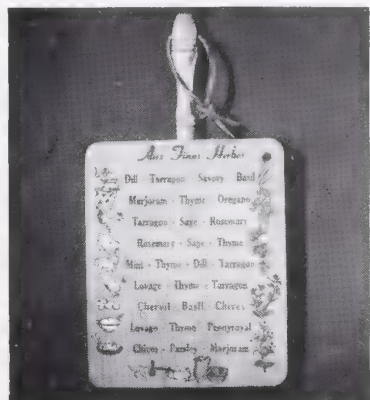 Aux Fines Herbes
Dill Tarragon Savory Basil
Marjoram - Thyme Oregano
Tarragon - Sage - Rosemary
Rosemary - Sage - Thyme
Mint - Thyme - Dill - Tarragon
Lovage - Thyme - Tarragon
Chervil - Basil - Chives
Lovage - Thyme - Pennyroyal
Chives - Parsley - Marjoram